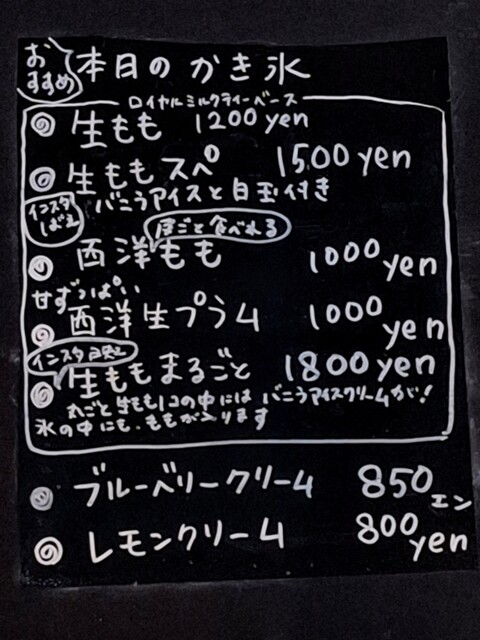 おすすめ
本日のかき氷
ロイヤルミルクティーベース
生もも 1200 yen
生ももスペ 1500 yen
インスタばえ
バニラアイスと白玉付き
皮ごと食べれる
西洋もも 1000 yen
せずっぱい
西洋生プラム 1000 yen
インスタ
生ももまるごと 1800 yen
丸ごと生もも1コの中には バニラアイスクリームが!
氷の中にも、ももが入ります
ブルーベリークリーム 850エン
レモンクリーム 800yen